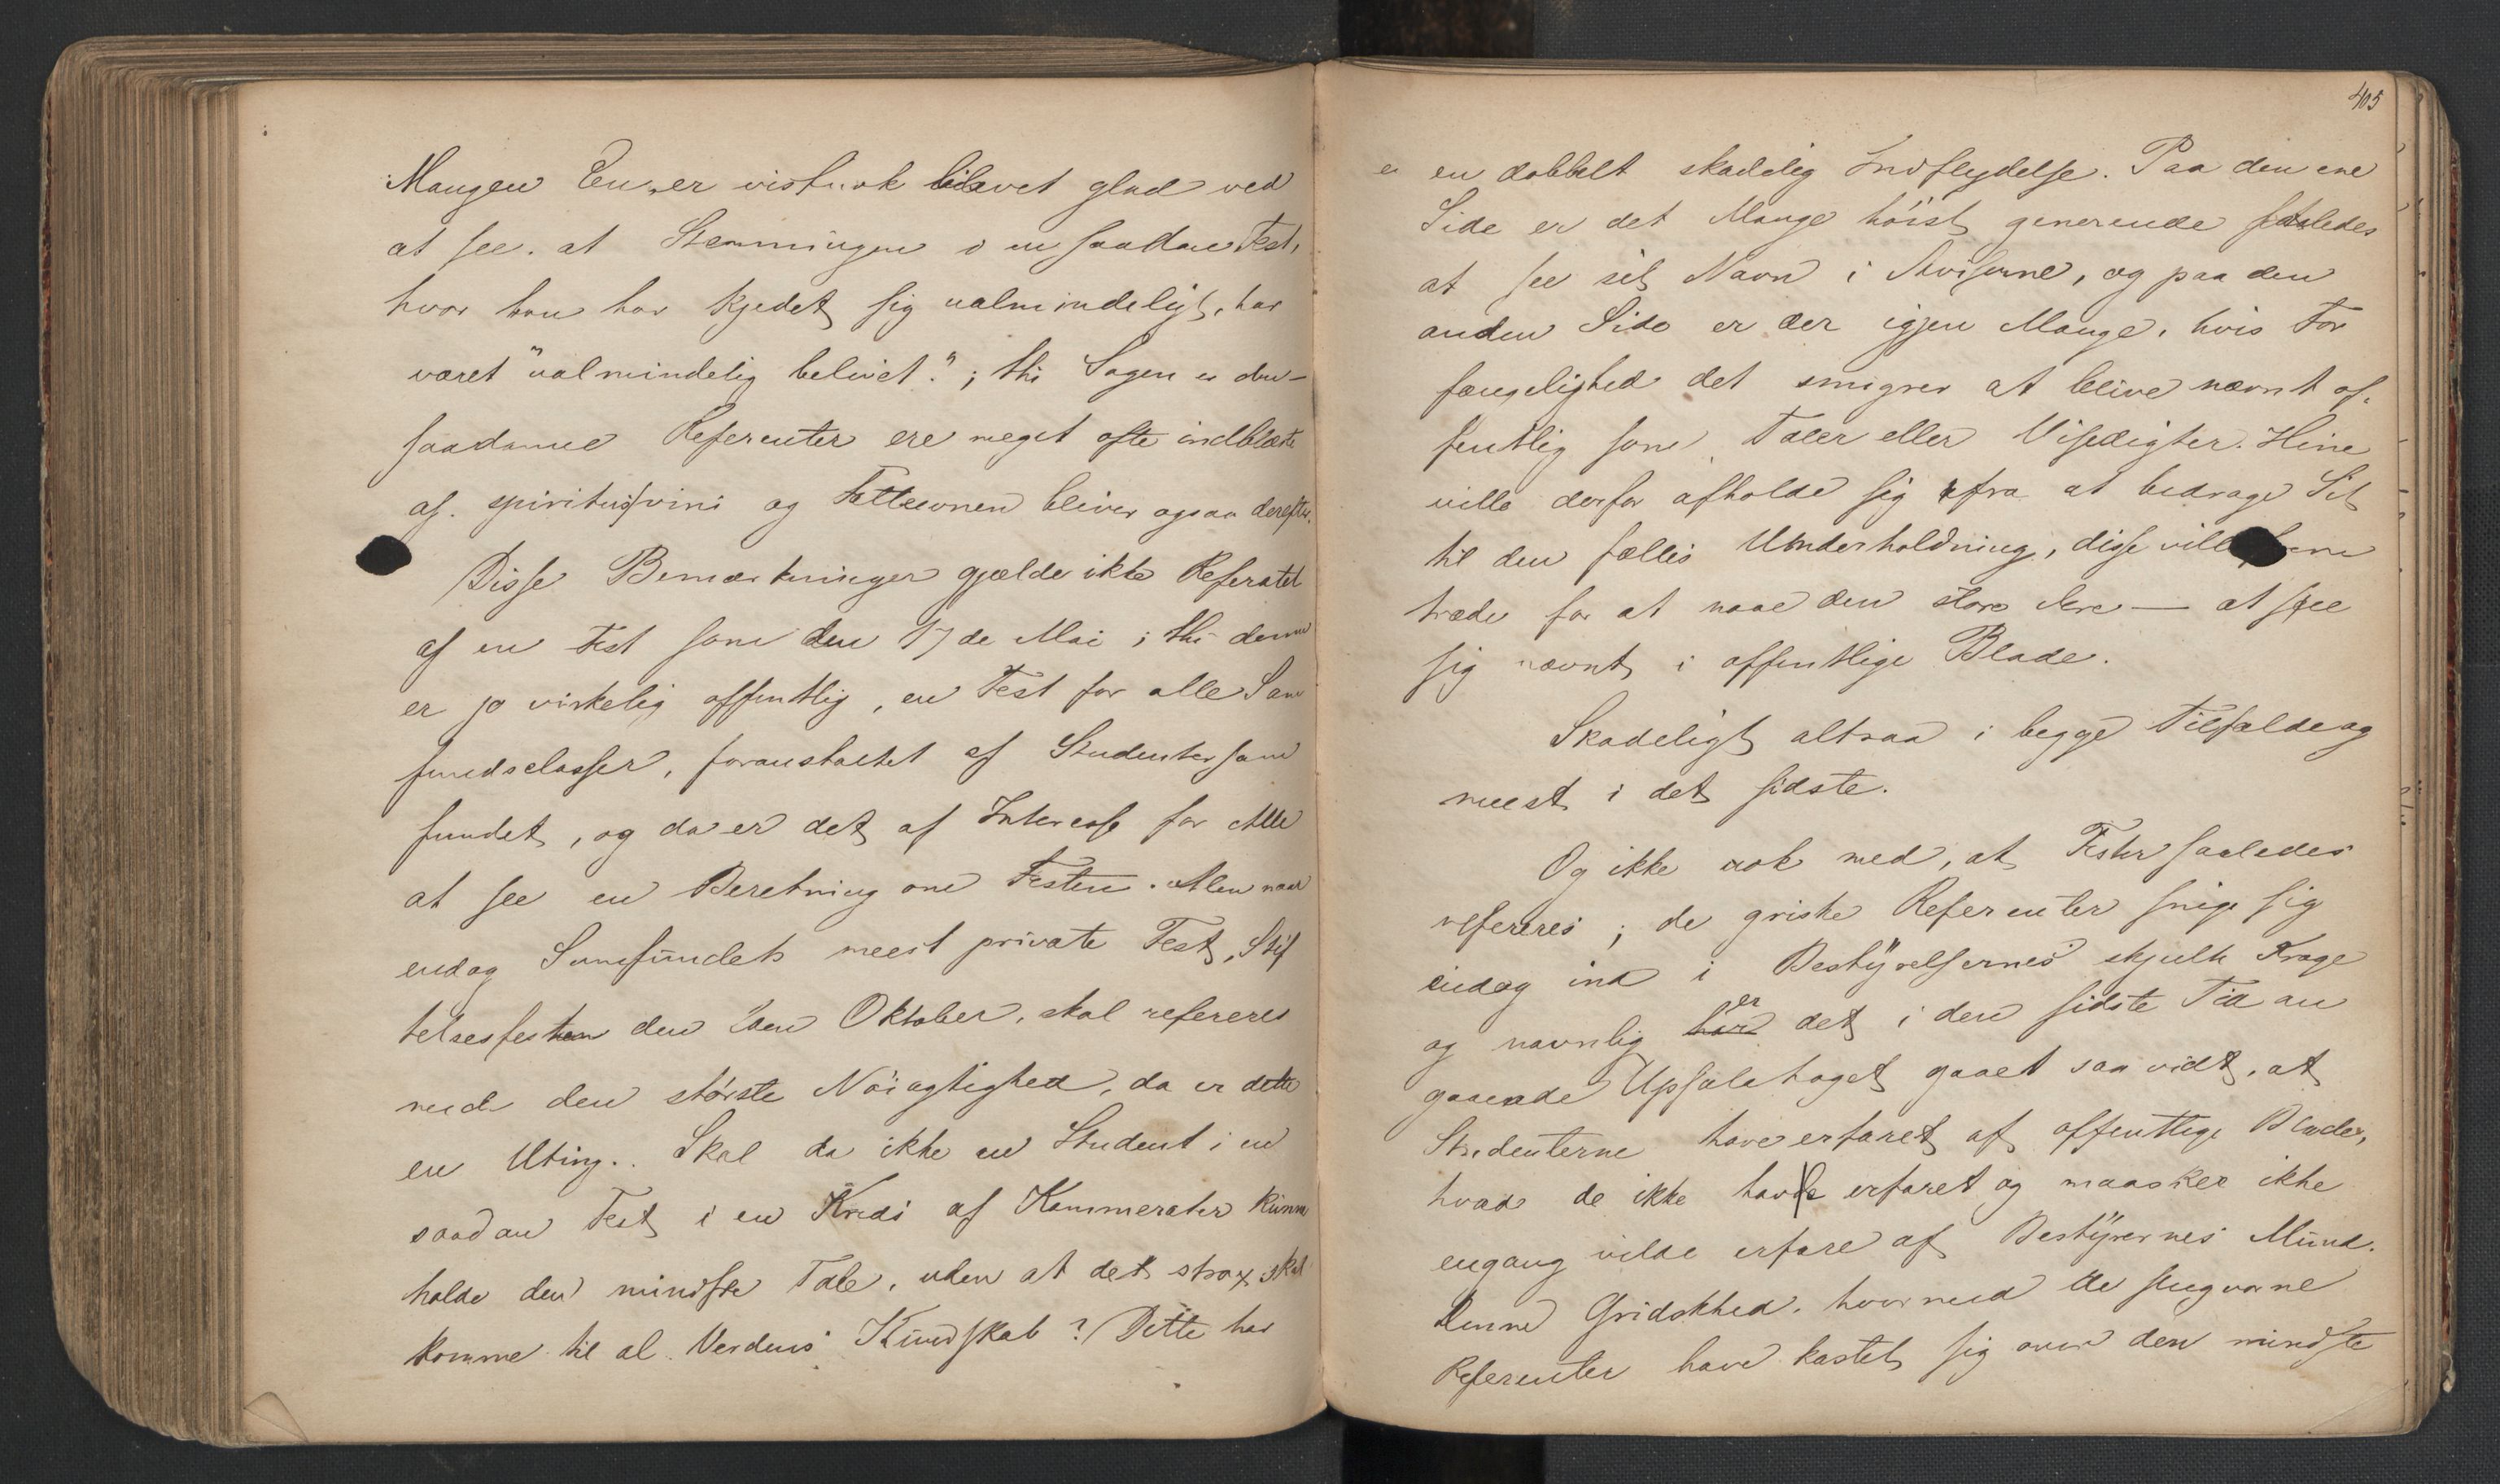 Mangen Een er vistnok blevet glad ved
at see, at Stemningen i en saadan Fest,
hvor han har kjedet sig ualmindeligt, har
været "ualmindelig belivet."; thi Sagen er den -
saadanne Referenter ere meget ofte indblæste
af spiritus vini og Tætleevnen bliver ogsaa derefter.
Disse Bemærkninger gjælde ikke Referatet
af en Fest som den 17de Mai; thi denne
er jo virkelig offentlig, en Fest for alle Sam
fundsclasser, foranstaltet af Studentersam
fundet, og da er det af Interesse for Alle
at see en Beretning om Festen. Men naar
endog Samfundets meest private Fest, Stif
telsesfesten den 2den Oktober, skal refereres
med den største Nöiagtighed, da er dette
en Uting. Skal da ikke en Student i en
saadan Fest i en Kreds af Kammerater kunne
holde den mindste Tale, uden at det strax skal
komme til al Verdens Kundskab? Dette har
405
en dobbelt skadelig Indflydelse. Paa den ene
Side er det Mange höist generende saaledes
at see sit Navn i Aviserne, og paa den
anden Side er der igjen Mange, hvis For
fængelighed det smigrer at blive nævnt of-
fentlig som Taler eller Visedigter. Hine
ville derfor afholde sig fra at bidrage Sit
til den fælles Underholdning, disse ville frem
træde for at naae den store Ære — at see
sig nævnt i offentlige Blade.
Skadeligt altsaa i begge Tilfælde og
meest i det sidste.
Og ikke nok med, at Fester saaledes
refereres; de griske Referenter snige sig
endog ind i Bestyrelsernes skjulte Krage
og navnlig har er det i den sidste Tid an
gaaende Upsalatoget gaaet saa vidt, at
Studenterne have erfaret af offentlige Blade,
hvad de ikke havde erfaret og maaskee ikke
engang vilde erfare af Bestyrernes Mund.
Denne Gridskhed, hvormed de slugvorne
Referenter have kastet sig over den mindste